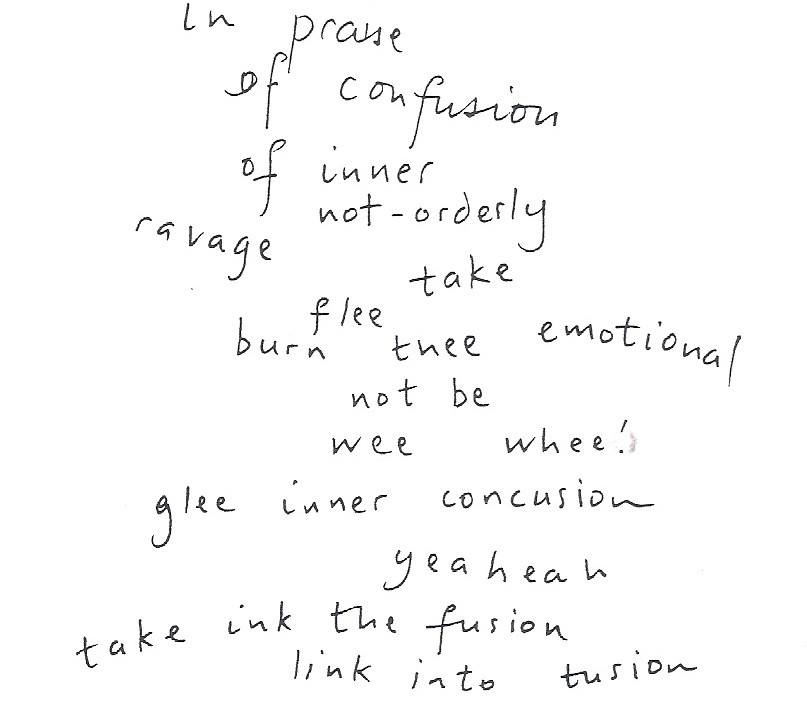 In praise
of confusion
of inner
not-orderly
ravage
take
flee
burn thee emotional
not be
wee whee!
glee inner concusion
yeaheah
take ink the fusion
link into tusion